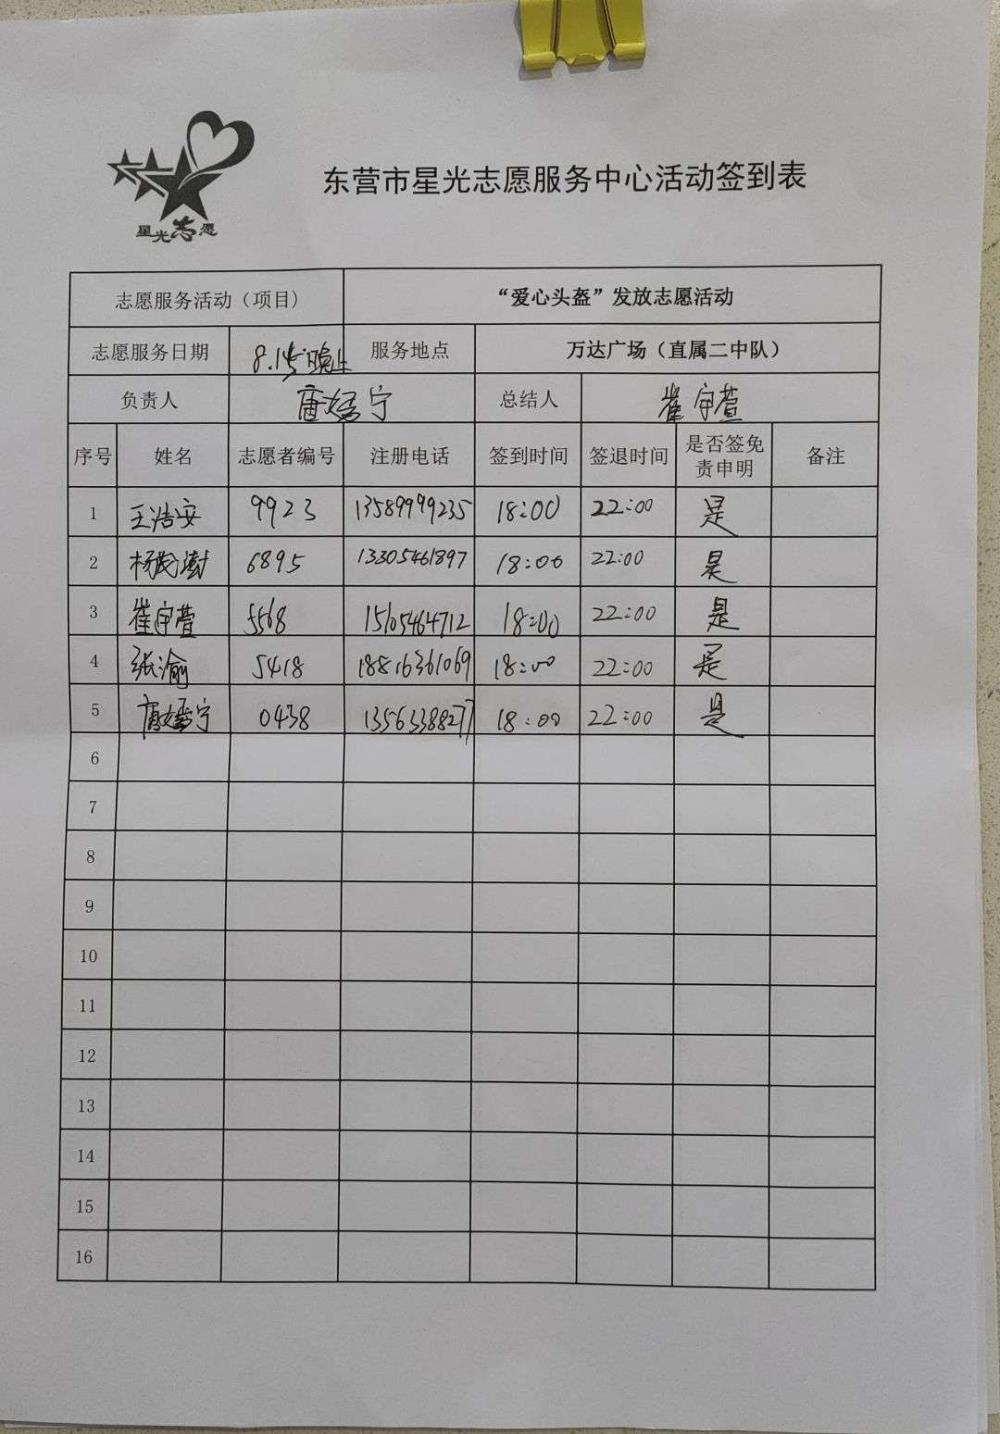 星光志愿
东营市星光志愿服务中心活动签到表
志愿服务活动（项目） “爱心头盔”发放志愿活动
志愿服务日期 8.15晚上 服务地点 万达广场（直属二中队）
负责人 唐嫣宁 总结人 崔宇萱
序号 姓名 志愿者编号 注册电话 签到时间 签退时间 是否签免责申明 备注
1 王浩安 9923 13589999235 18:00 22:00 是
2 杨 澍 6895 13305461897 18:00 22:00 是
3 崔宇萱 5568 15105464712 18:00 22:00 是
4 张渝 5418 18816361069 18:00 22:00 是
5 唐嫣宁 0438 13563388277 18:00 22:00 是
6
7
8
9
10
11
12
13
14
15
16